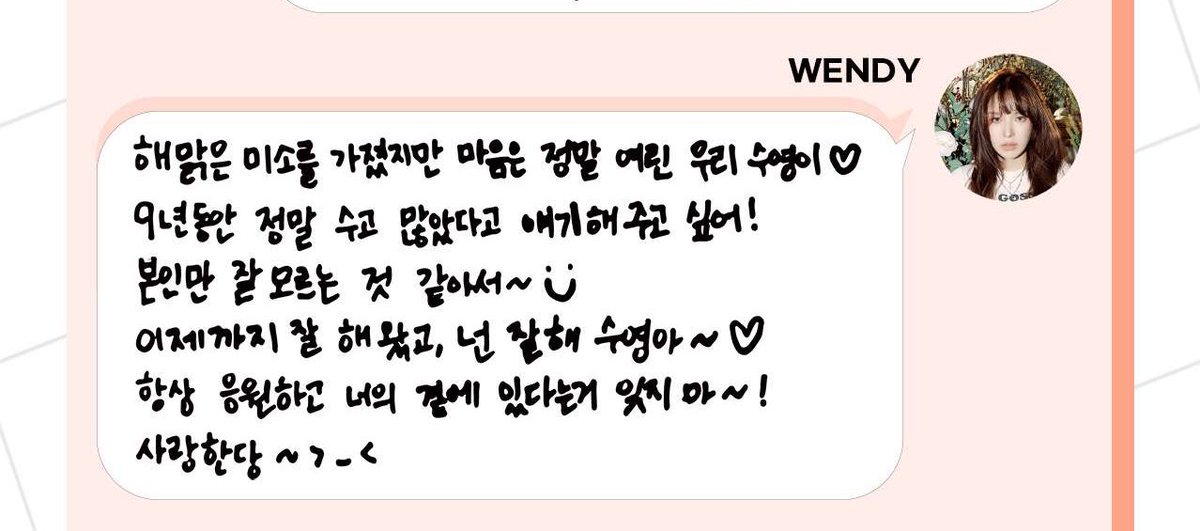 WENDY
해맑은 미소를 가졌지만 마음은 정말 여린 우리 수영이♡
9년동안 정말 수고 많았다고 얘기해주고 싶어!
본인만 잘 모르는 것 같아서~
어제까지 잘 해왔고, 넌 잘해 수영아~♡
항상 응원하고 너의 곁에 있다는거 잊지 마~!
사랑한당 ~>_<
GOS